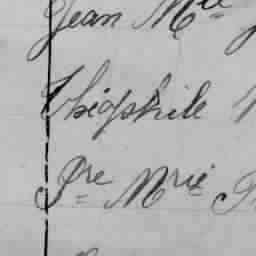 Jean Mlle
Théophile
Pre Mrie